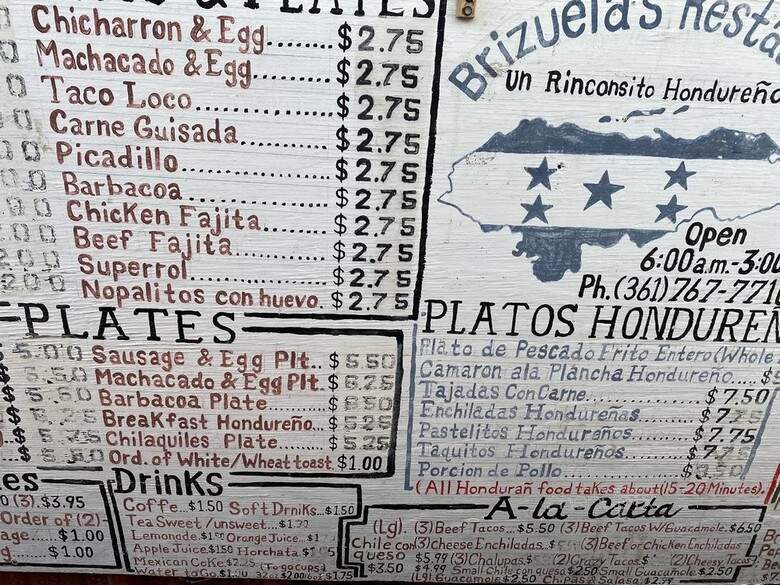 & PLATES
Chicharron & Egg.......$2.75
Machacado & Egg.........$2.75
Taco Loco...............$2.75
Carne Guisada...........$2.75
Picadillo...............$2.75
Barbacoa................$2.75
Chicken Fajita..........$2.75
Beef Fajita.............$2.75
Superrol................$2.75
Nopalitos con huevo.$2.75
Brizuela's
Un Rinconsito Hondureño
Open
6:00a.m.-3:00
Ph.(361)767-771
PLATES
5.00 Sausage & Egg Plt..$5.50
5.50 Machacado & Egg Plt.$6.25
5.50 Barbacoa Plate......$6.50
Breakfast Hondureño...$5.25
Chilaquiles Plate......$5.25
Ord. of White/Wheat toast.$1.00
PLATOS HONDUREÑ
Plato de Pescado Frito Entero (Whole
Camaron ala Plancha Hondureño.....$
Tajadas Con Carne...............$7.50
Enchiladas Hondureñas.........$7.
Pastelitos Hondureños.........$7.75
Taquitos Hondureños..........$7.75
Porcion de Pollo..............$
(All Honduran food takes about (15-20 Minutes)
es
(3).$3.95
Order of (2)
age....$1.00
g.....$1.00
Drinks
Coffe..$1.50 Soft Drniks...$1.50
Tea Sweet/unsweet...
Lemonade.$1.50 Orange Juice..$1
Apple Juice.$1.50 Horchata
Mexican Coke (To go cups)
Water To Go 32oz $2.00 $1.75
A-la-Carta
(Lg). (3) Beef Tacos...$5.50 (3) Beef Tacos W/Guacamole.$6.50
Chile con (3) Cheese Enchiladas..$5 (3) Beef or Chicken Enchiladas
queso $5.99 (3) Chalupas..$ (2) Crazy Tacos.$ (2) Cheesy Tacos
$3.50 $4.99 Small Chile con queso $2.50 Small Guacamole $2.50
(Lg) Guacamole $2.50 Chips & Salsa